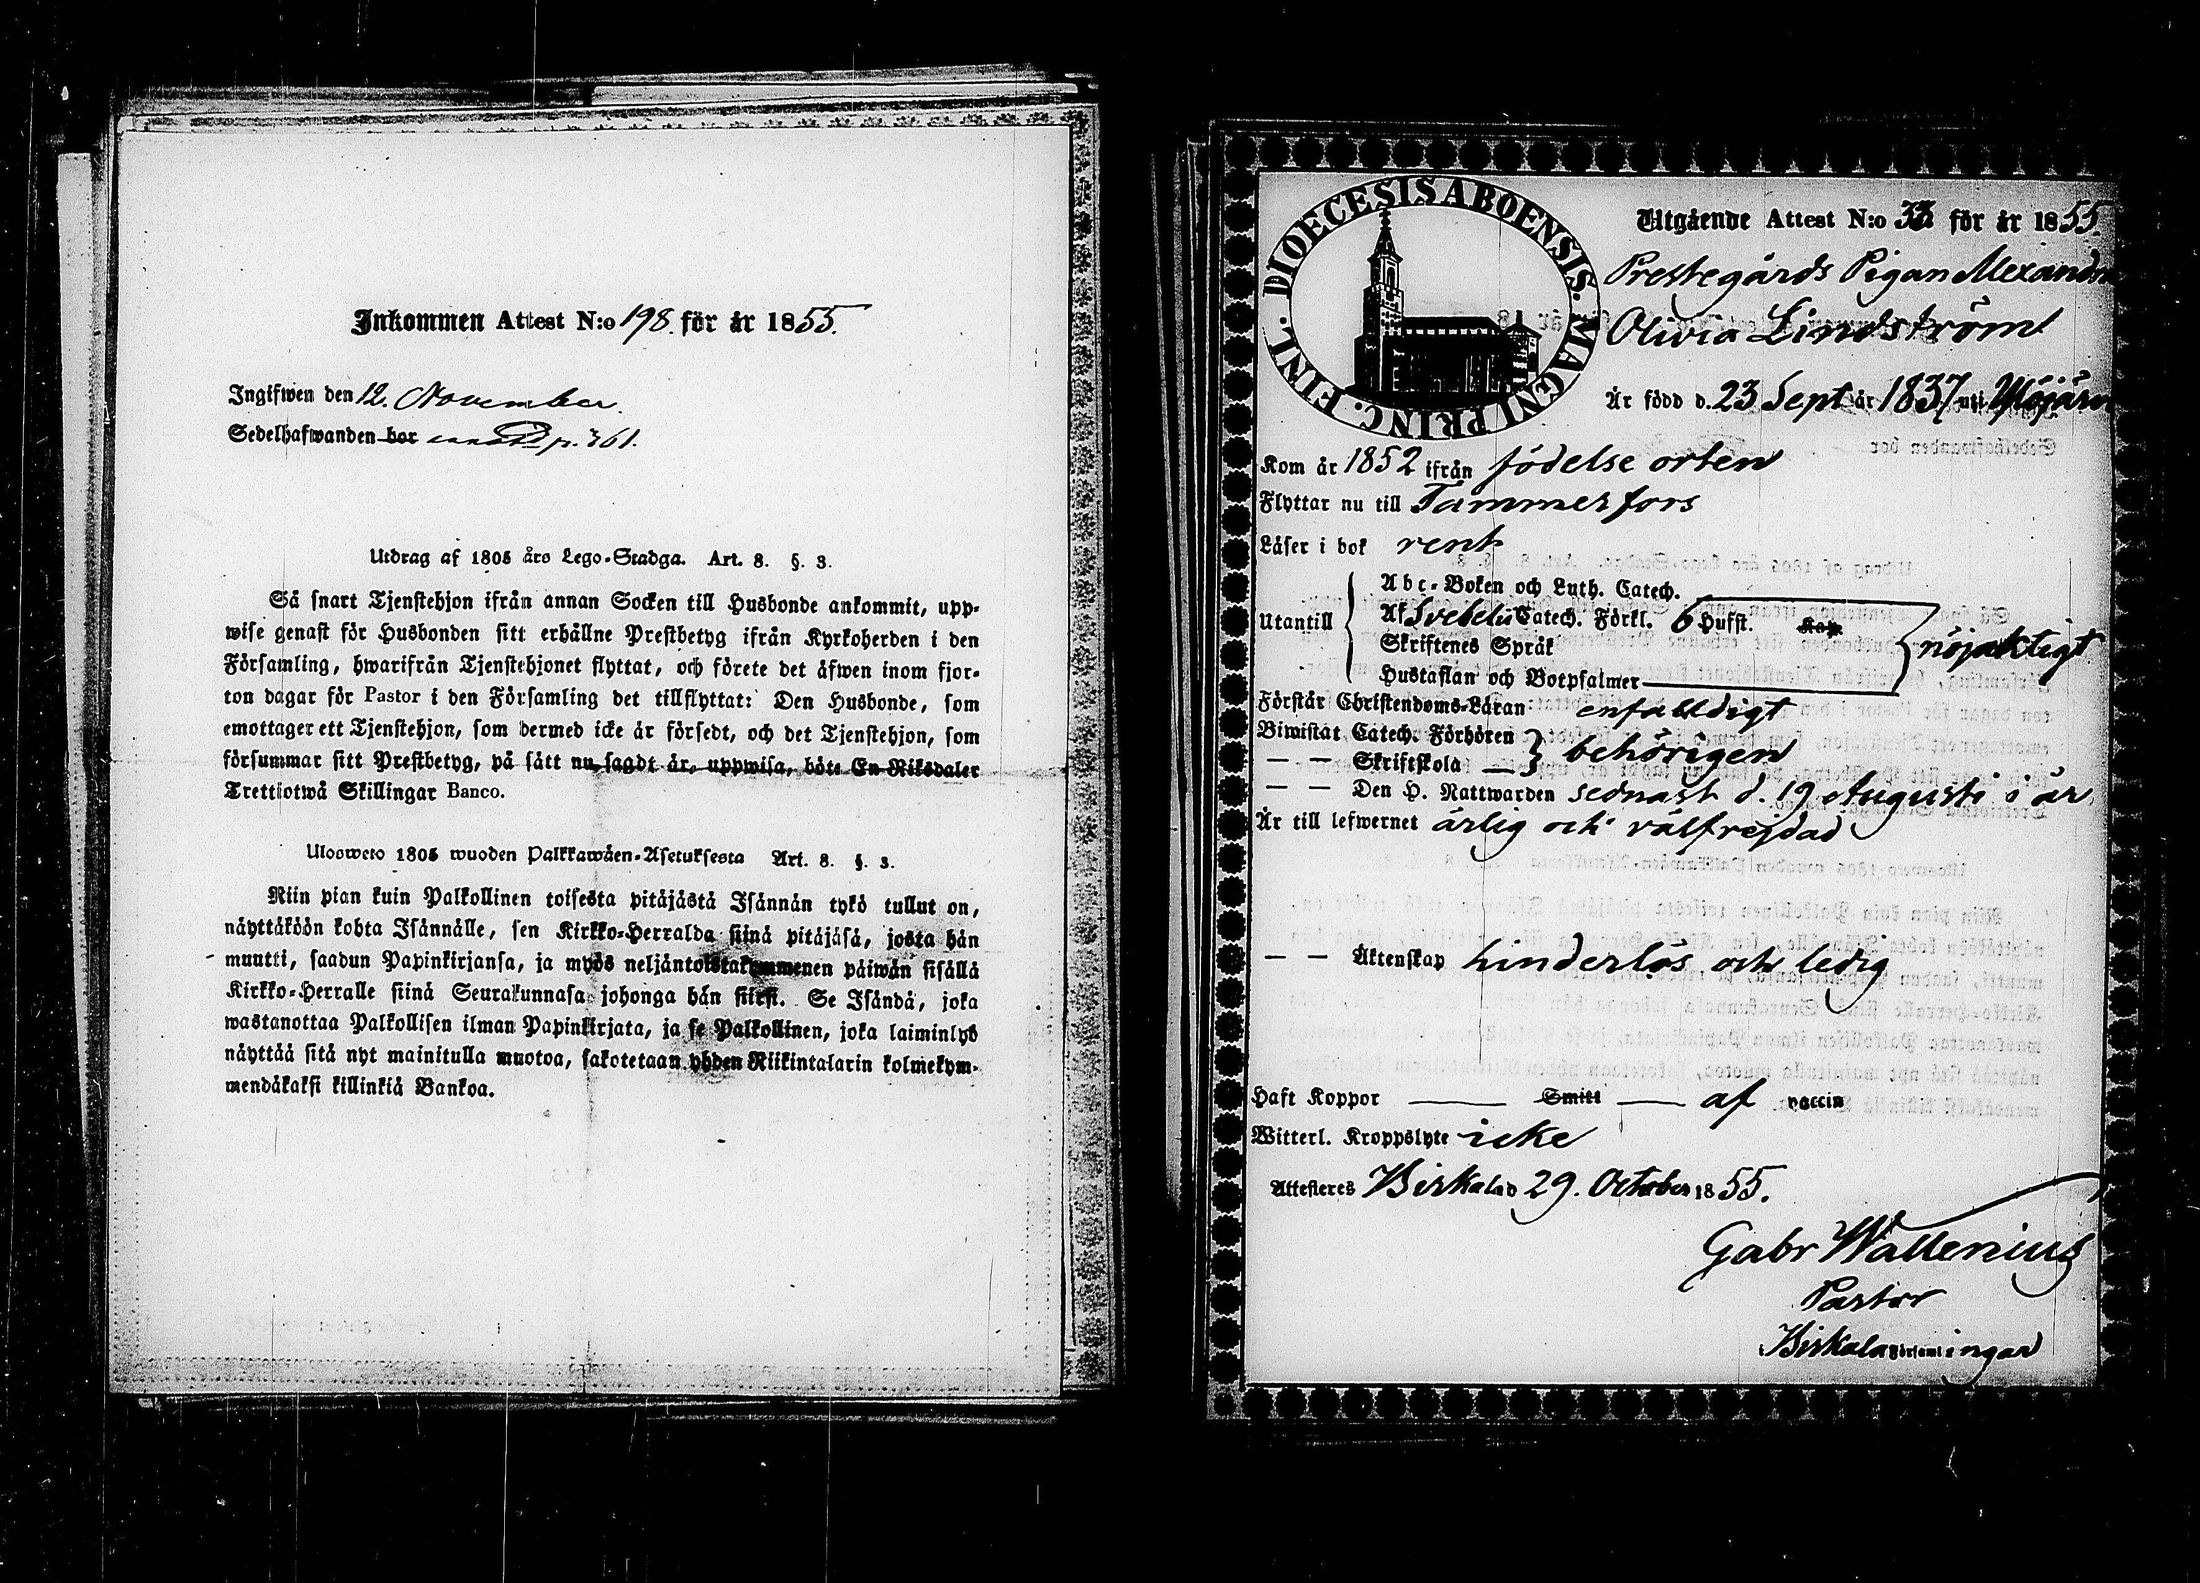 Inkommen Attest N:o 198. för år 1855.
Ingifwen den 12. November.
Sedelhafwanden bor p. 361.
Utdrag af 1805 års Lego-Stadga. Art. 8. §. 3.
Så snart Tjenstehjon ifrån annan Socken till Husbonde ankommit, upp-
wise genast för Husbonden sitt erhållne Prestbetyg ifrån Kyrkoherden i den
Församling, hwarifrån Tjenstehjonet flyttat, och förete det äfwen inom fjor-
ton dagar för Pastor i den Församling det tillflyttat: Den Husbonde, som
emottager ett Tjenstehjon, som dermed icke är försedt, och det Tjenstehjon, som
försummar sitt Prestbetyg, på sätt nu sagdt är, uppwisa, böte En Riksdaler
Trettiotwå Skillingar Banco.
Ulosweto 1805 wuoden Palkkawäen-Asetuksesta Art. 8. §. 3.
Niin pian kuin Palkollinen toisesta pitäjästä Isännän tykö tullut on,
näyttäköön kohta Isännälle, sen Kirkko-Herralda siinä pitäjäsä, josta hän
muutti, saadun Papinkirjansa, ja myös neljäntoistakymmenen päiwän sisällä
Kirkko-Herralle siinä Seurakunnasa johonga hän siirsi. Se Isändä, joka
wastanottaa Palkollisen ilman Papinkirjata, ja se Palkollinen, joka laiminlyö
näyttää sitä nyt mainitulla muotoa, sakotetaan yhden Riikintalarin kolmekym-
mendäkaksi killinkiä Bankoa.
DIOECESIS ABOENSIS. MAGNI PRINC. FINL.
Utgående Attest N:o 33 för år 1855.
Prestegårds Pigan Alexandra
Olivia Lindström
Är född d. 23 Sept år 1837 uti Ylöjärvi
Kom år 1852 ifrån födelse orten
Flyttar nu till Tammerfors
Läser i bok rent
Utantill
Abc-Boken och Luth. Catech.
Af Svebelii Catech. Förkl. 6 Hufst. Kap.
Skriftenes Språk
Hustaflan och Botpsalmer
nöjaktigt
Förstår Christendoms-Läran enfaldigt
Biwistat Catech. Förhören
— — Skriftskola —
behörigen
— — Den H. Nattwarden sednast d. 19 Augusti i år
Är till lefwernet ärlig och välfrejdad
— — Äktenskap hinderlös och ledig
Haft Koppor — Smitt — af vaccin
Witterl. Kroppslyte icke
Attesteras Birkala d 29. October 1855.
Gabr Wallenius
Pastor
i Birkala Församlingar